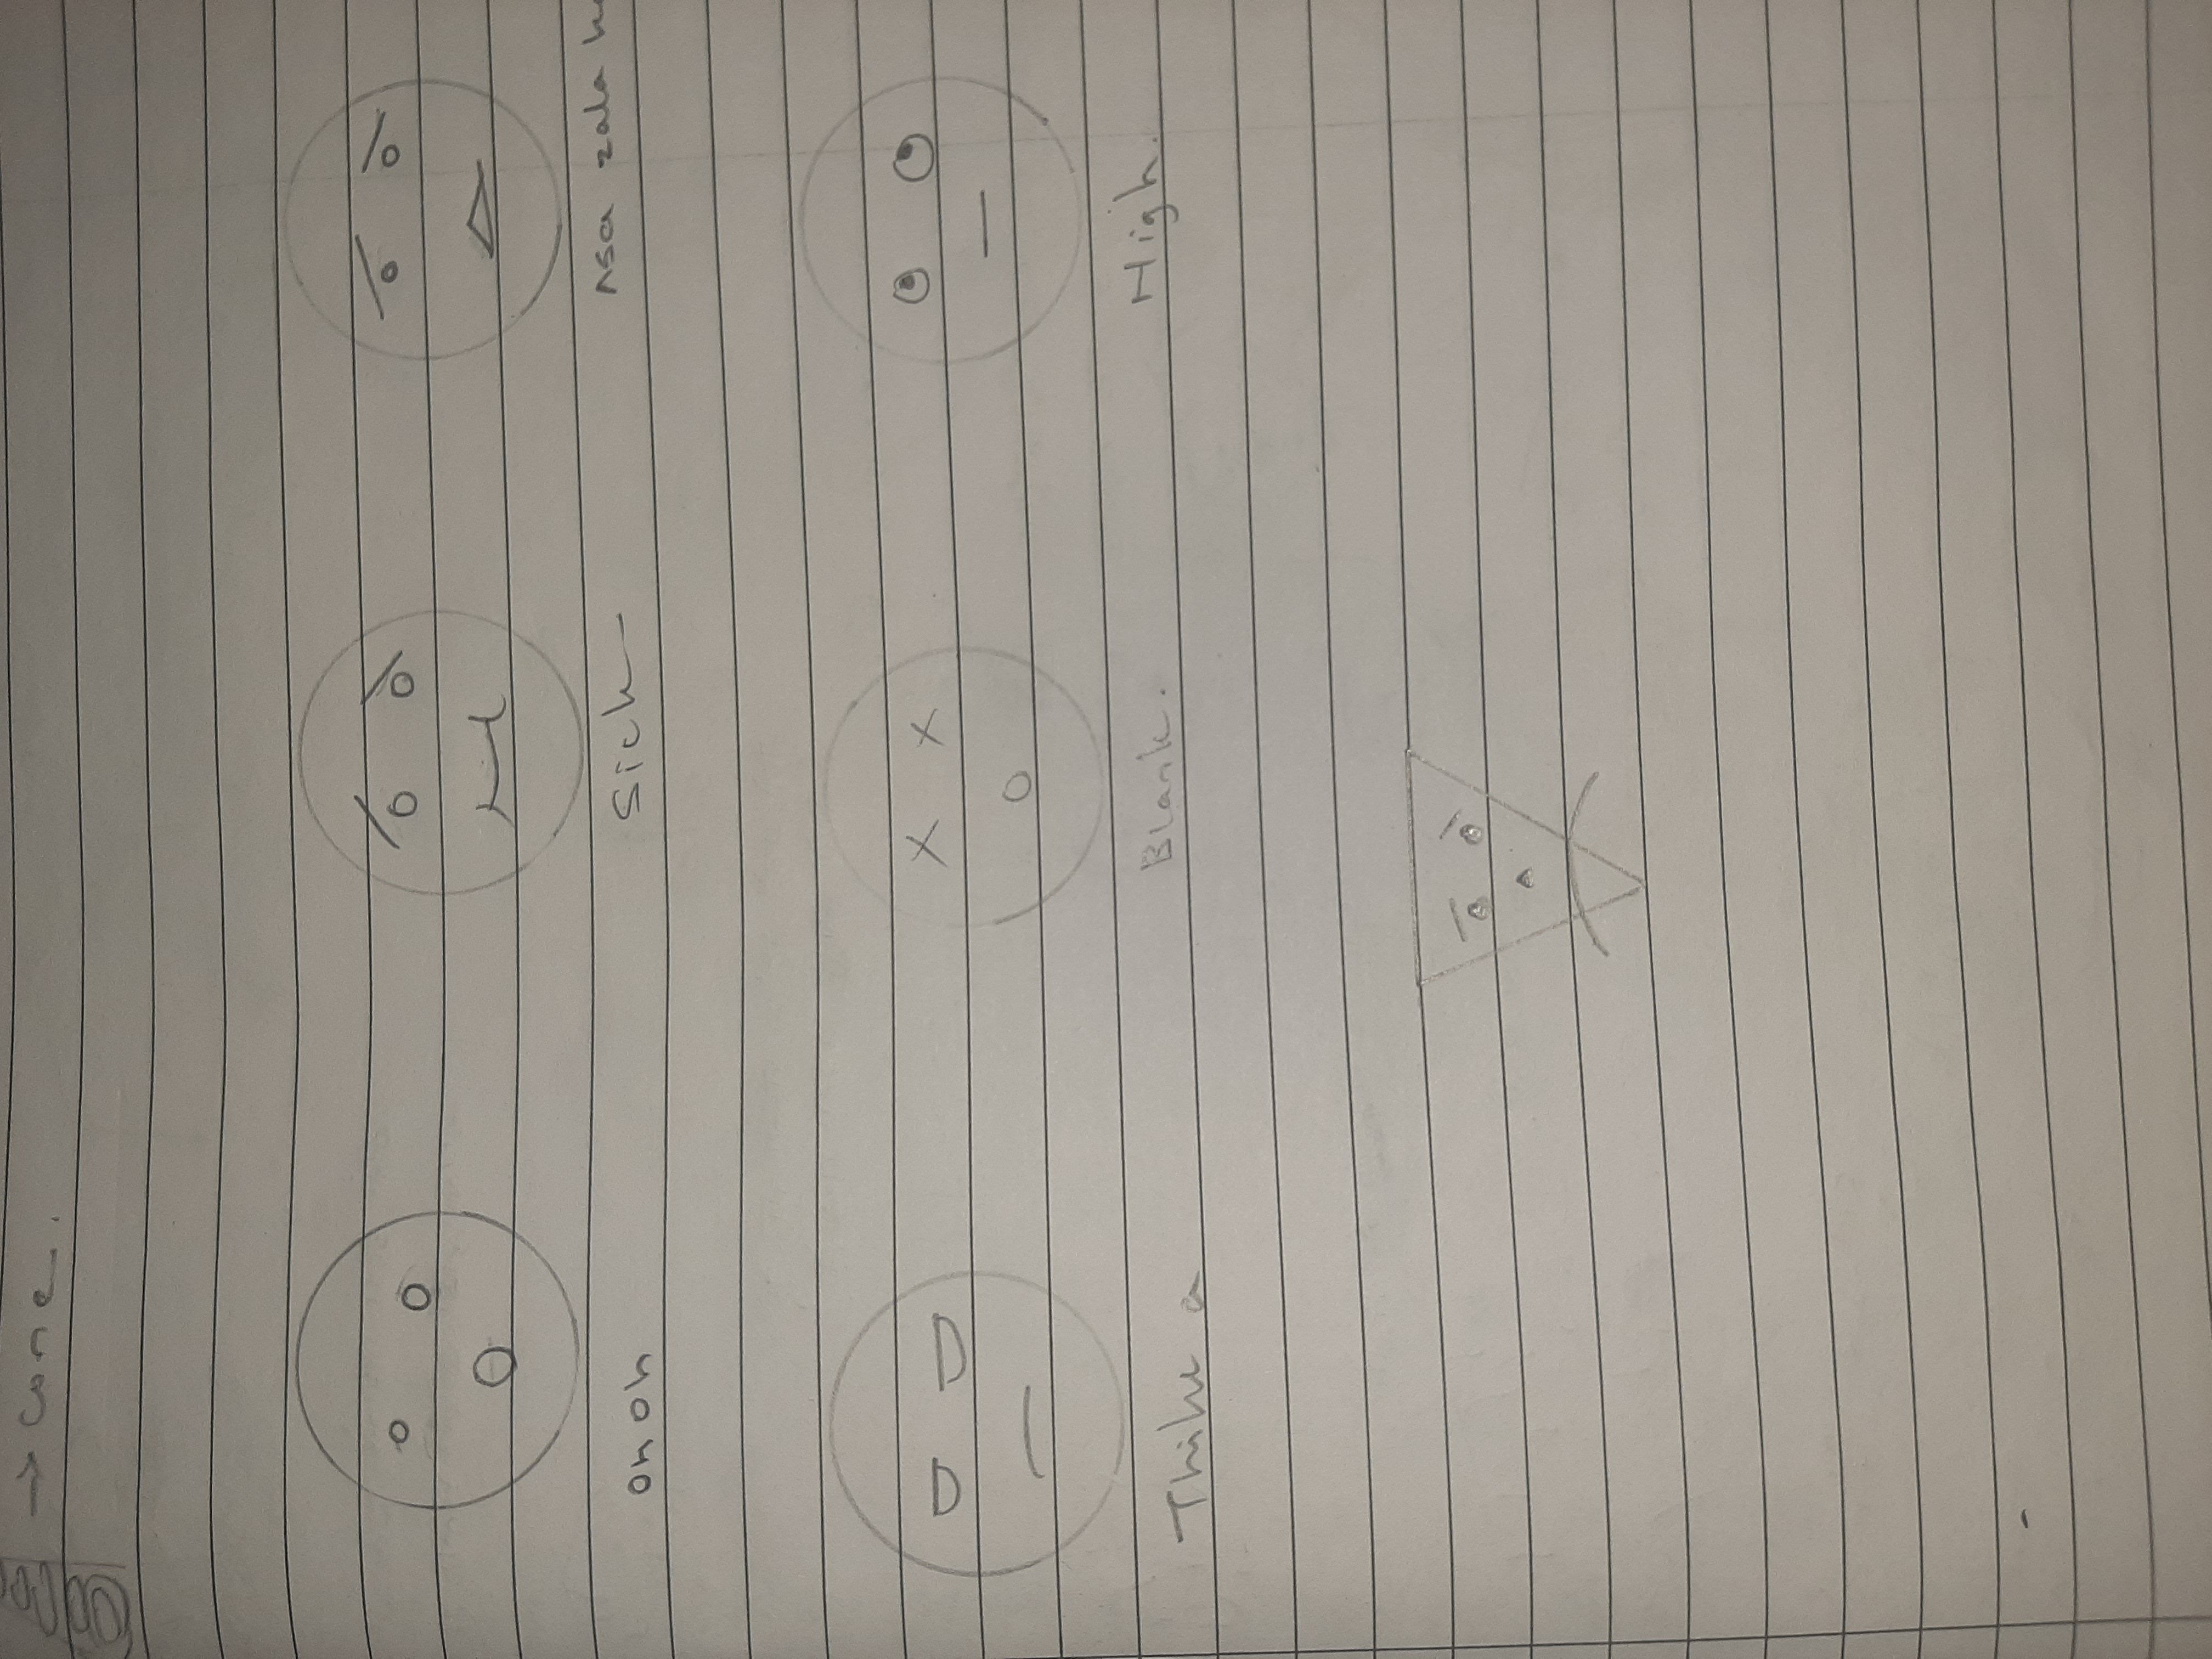 → Cone.
Oh oh
Sick
Asa zala
Thike a
Blank.
High.